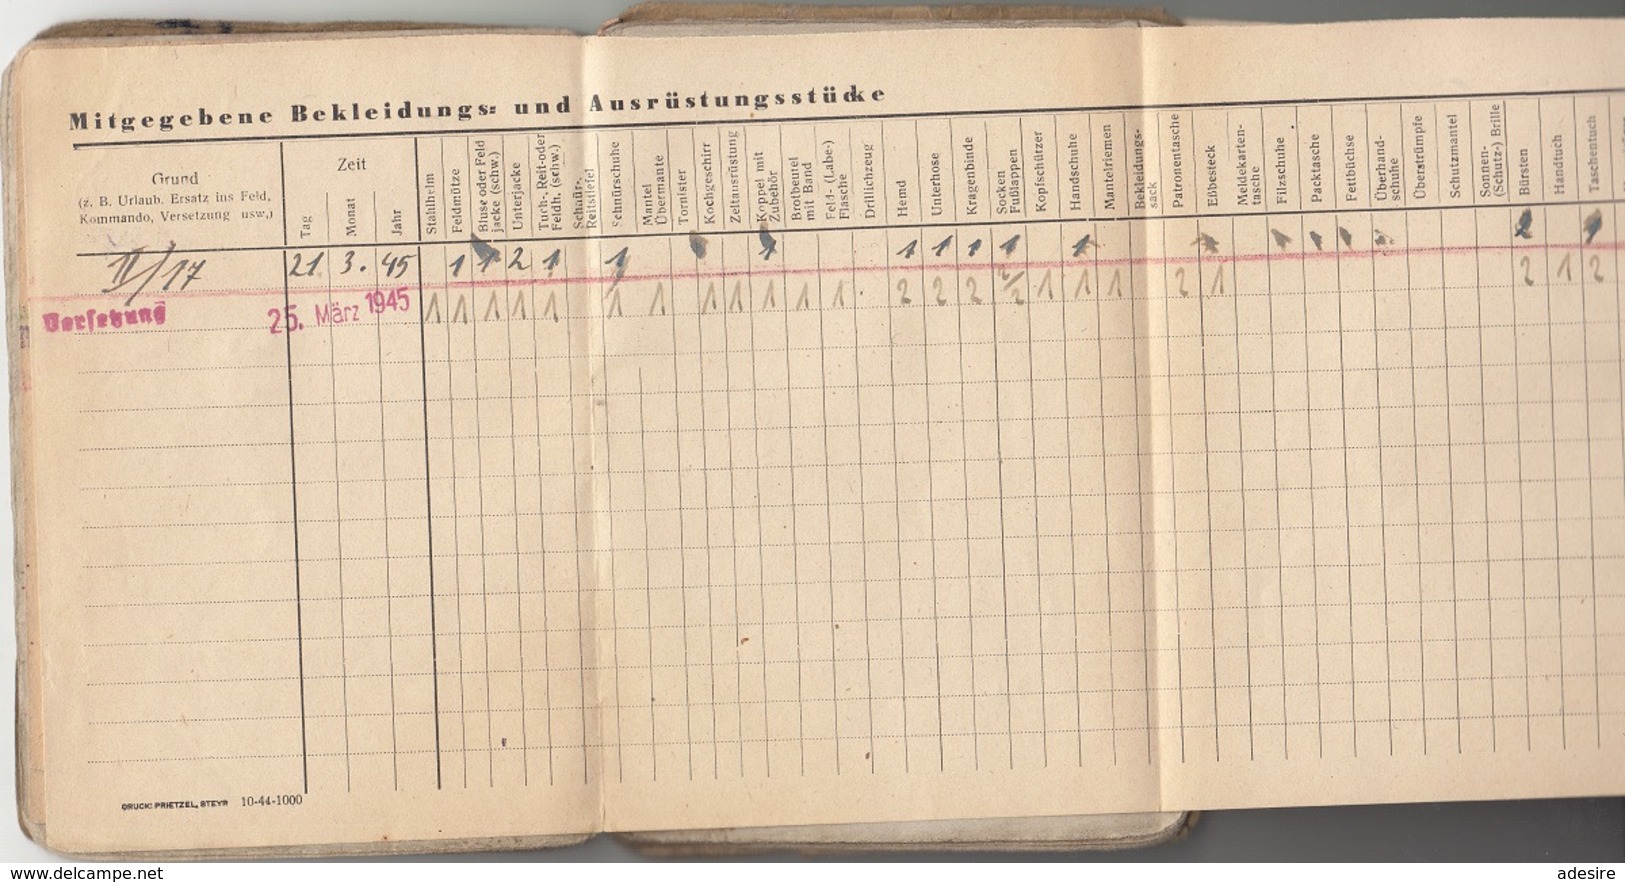 Mitgegebene Bekleidungs- und Ausrüstungsstücke
Grund
(z. B. Urlaub, Ersatz ins Feld,
Kommando, Versetzung usw.)
Zeit
Tag
Monat
Jahr
Stahlhelm
Feldmütze
Bluse oder Feld
jacke (schw.)
Unterjacke
Tuch-, Reit- oder
Feldh. (schw.)
Schnür-,
Reitstiefel
Schnürschuhe
Mantel
Übermante
Tornister
Kochgeschirr
Zeltausrüstung
Koppel mit
Zubehör
Brotbeutel
mit Band
Feld- (Labe-)
Flasche
Drillichzeug
Hemd
Unterhose
Kragenbinde
Socken
Fußlappen
Kopfschützer
Handschuhe
Mantelriemen
Bekleidungs-
sack
Patronentasche
Eßbesteck
Meldekarten-
tasche
Filzschuhe
Packtasche
Fettbüchse
Überhand-
schuhe
Überstrümpfe
Schutzmantel
Sonnen-
(Schutz-) Brille
Bürsten
Handtuch
Taschentuch
II/17 21 3. 45 1 1 2 1 1 1 1 1 1 1 1 2 1
Versetzung 25. März 1945 1 1 1 1 1 1 1 1 1 1 1 1 2 2 2 2/2 1 1 1 2 1 2 1 2
DRUCK: PRIETZEL, STEYR 10-44-1000
delcampe.net
adesire